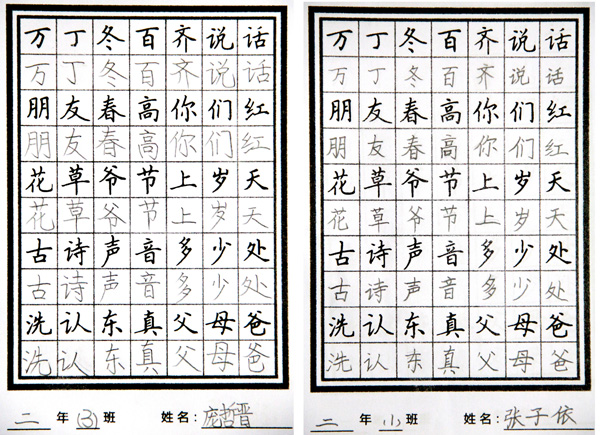 万丁冬百齐说话
万丁冬百齐说话
朋友春高你们红
朋友春高你们红
花草爷节上岁天
花草爷节上岁天
古诗声音多少处
古诗声音多少处
洗认东真父母爸
洗认东真父母爸
二年(3)班 姓名:庞哲晋
万丁冬百齐说话
万丁冬百齐说话
朋友春高你们红
朋友春高你们红
花草爷节上岁天
花草爷节上岁天
古诗声音多少处
古诗声音多少处
洗认东真父母爸
洗认东真父母爸
二年(1)班 姓名:张子依